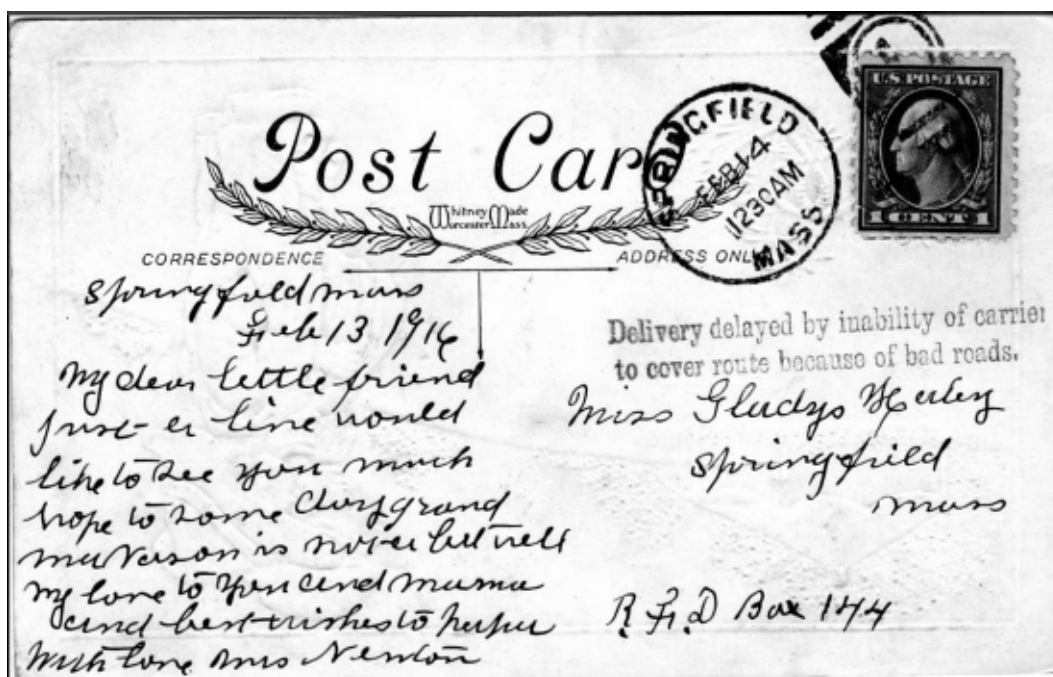 Post Car
Whitney Made
Worcester Mass.
SPRINGFIELD
FEB 14
1230 AM
MASS
U.S. POSTAGE
1 CENT 1
CORRESPONDENCE
ADDRESS ONLY
Springfield mass
Feb 13 1916
My dear little friend
Just a line would
like to see you much
hope to some day grand
ma is not a bit well
my love to you and mama
and best wishes to papa
With love Mrs Newton
Delivery delayed by inability of carrier
to cover route because of bad roads.
Miss Gladys
Springfield
mass
R.F.D Box 144